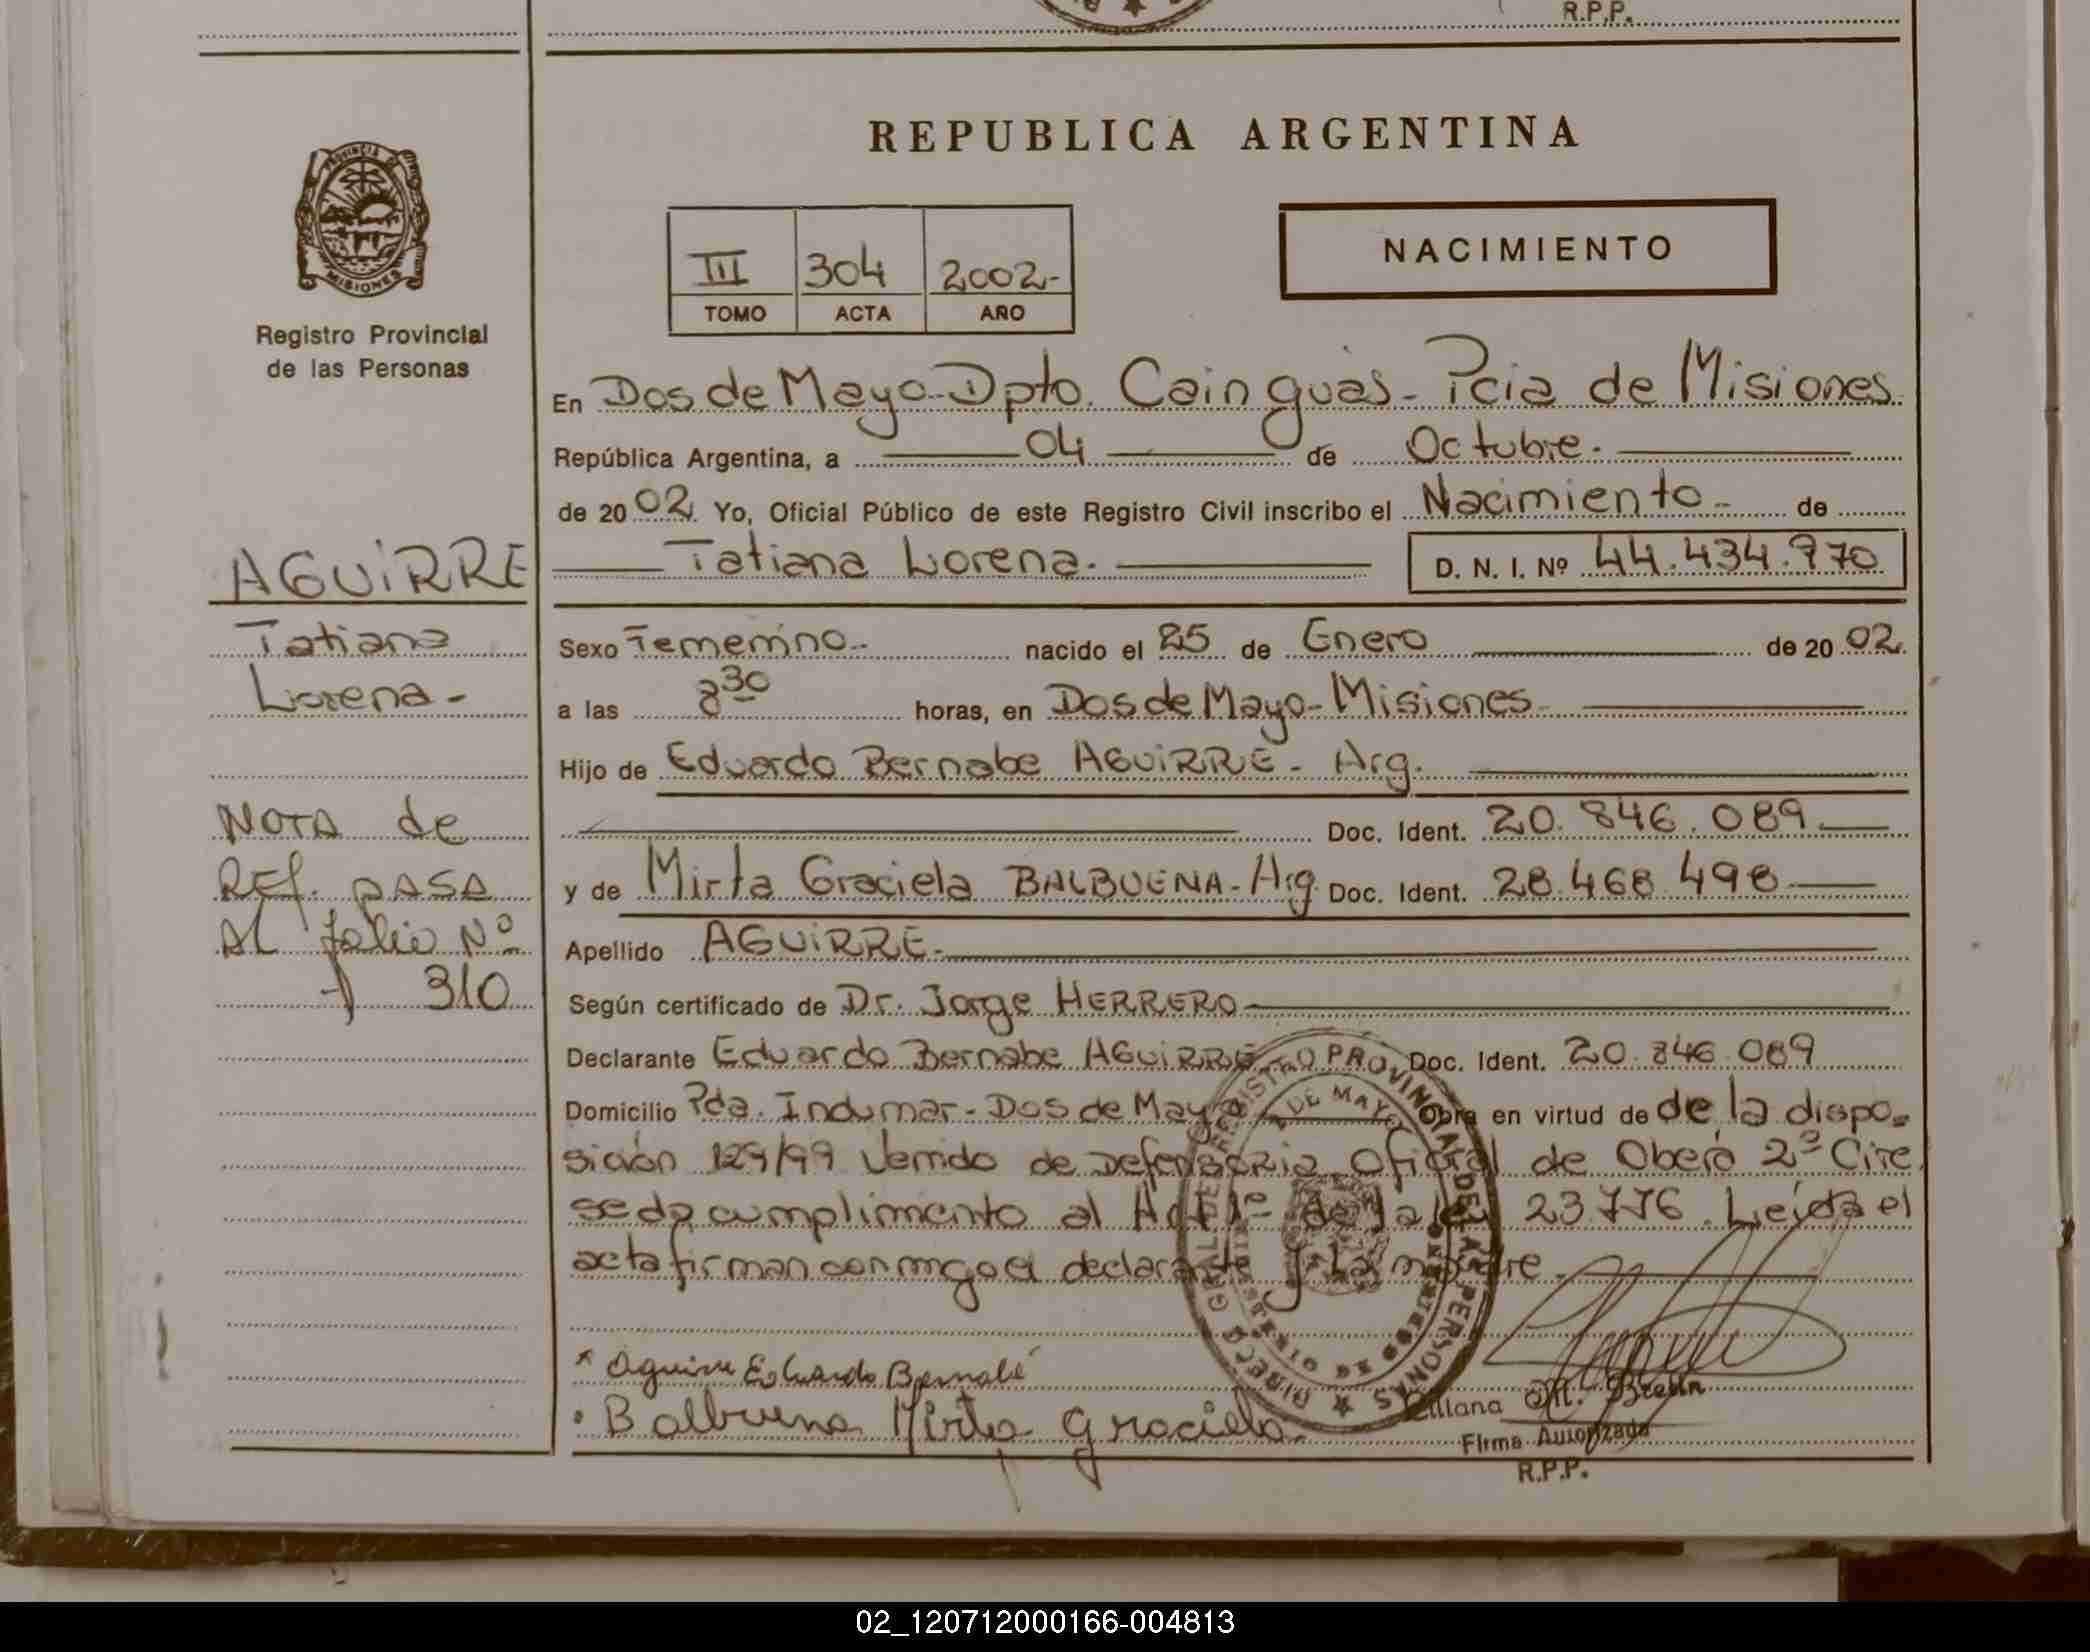 R.P.P.
PROVINCIA DE
MISIONES
Registro Provincial
de las Personas
AGUIRRE
Tatiana
Lorena-
NOTA de
REf. PASA
AL folio Nº
310
REPUBLICA ARGENTINA
III 304 2002-
TOMO ACTA AÑO
NACIMIENTO
En Dos de Mayo-Dpto. Cainguás- Pcia de Misiones.
República Argentina, a 04 de Octubre.
de 2002. Yo, Oficial Público de este Registro Civil inscribo el Nacimiento- de
Tatiana Lorena. D. N. I. Nº 44.434.970
Sexo Femenino- nacido el 25 de Enero de 2002.
a las 8 30 horas, en Dos de Mayo-Misiones
Hijo de Eduardo Bernabe AGUIRRE- Arg.
Doc. Ident. 20.846.089
y de Mirta Graciela BALBUENA-Arg. Doc. Ident. 28.468.498
Apellido AGUIRRE-
Según certificado de Dr. Jorge HERRERO
Declarante Eduardo Bernabe AGUIRRE Doc. Ident. 20.846.089
Domicilio Pda. Indumar-Dos de Mayo Obra en virtud de de la dispo-
sición 129/99 Venido de Defensoria Oficial de Oberá 2º Circ.
se da cumplimento al Art 1º de la ley 23.776. Leída el
acta firman conmigo el declarante y la madre.
* Aguirre Eduardo Bernabé
. Balbuena Mirta Graciela
DIRECC. GRAL. DE REGISTRO PROVINCIAL DE LAS PERSONAS
2 DE MAYO
Liliana M. Brelin
Firma Autorizada
R.P.P.
02_120712000166-004813